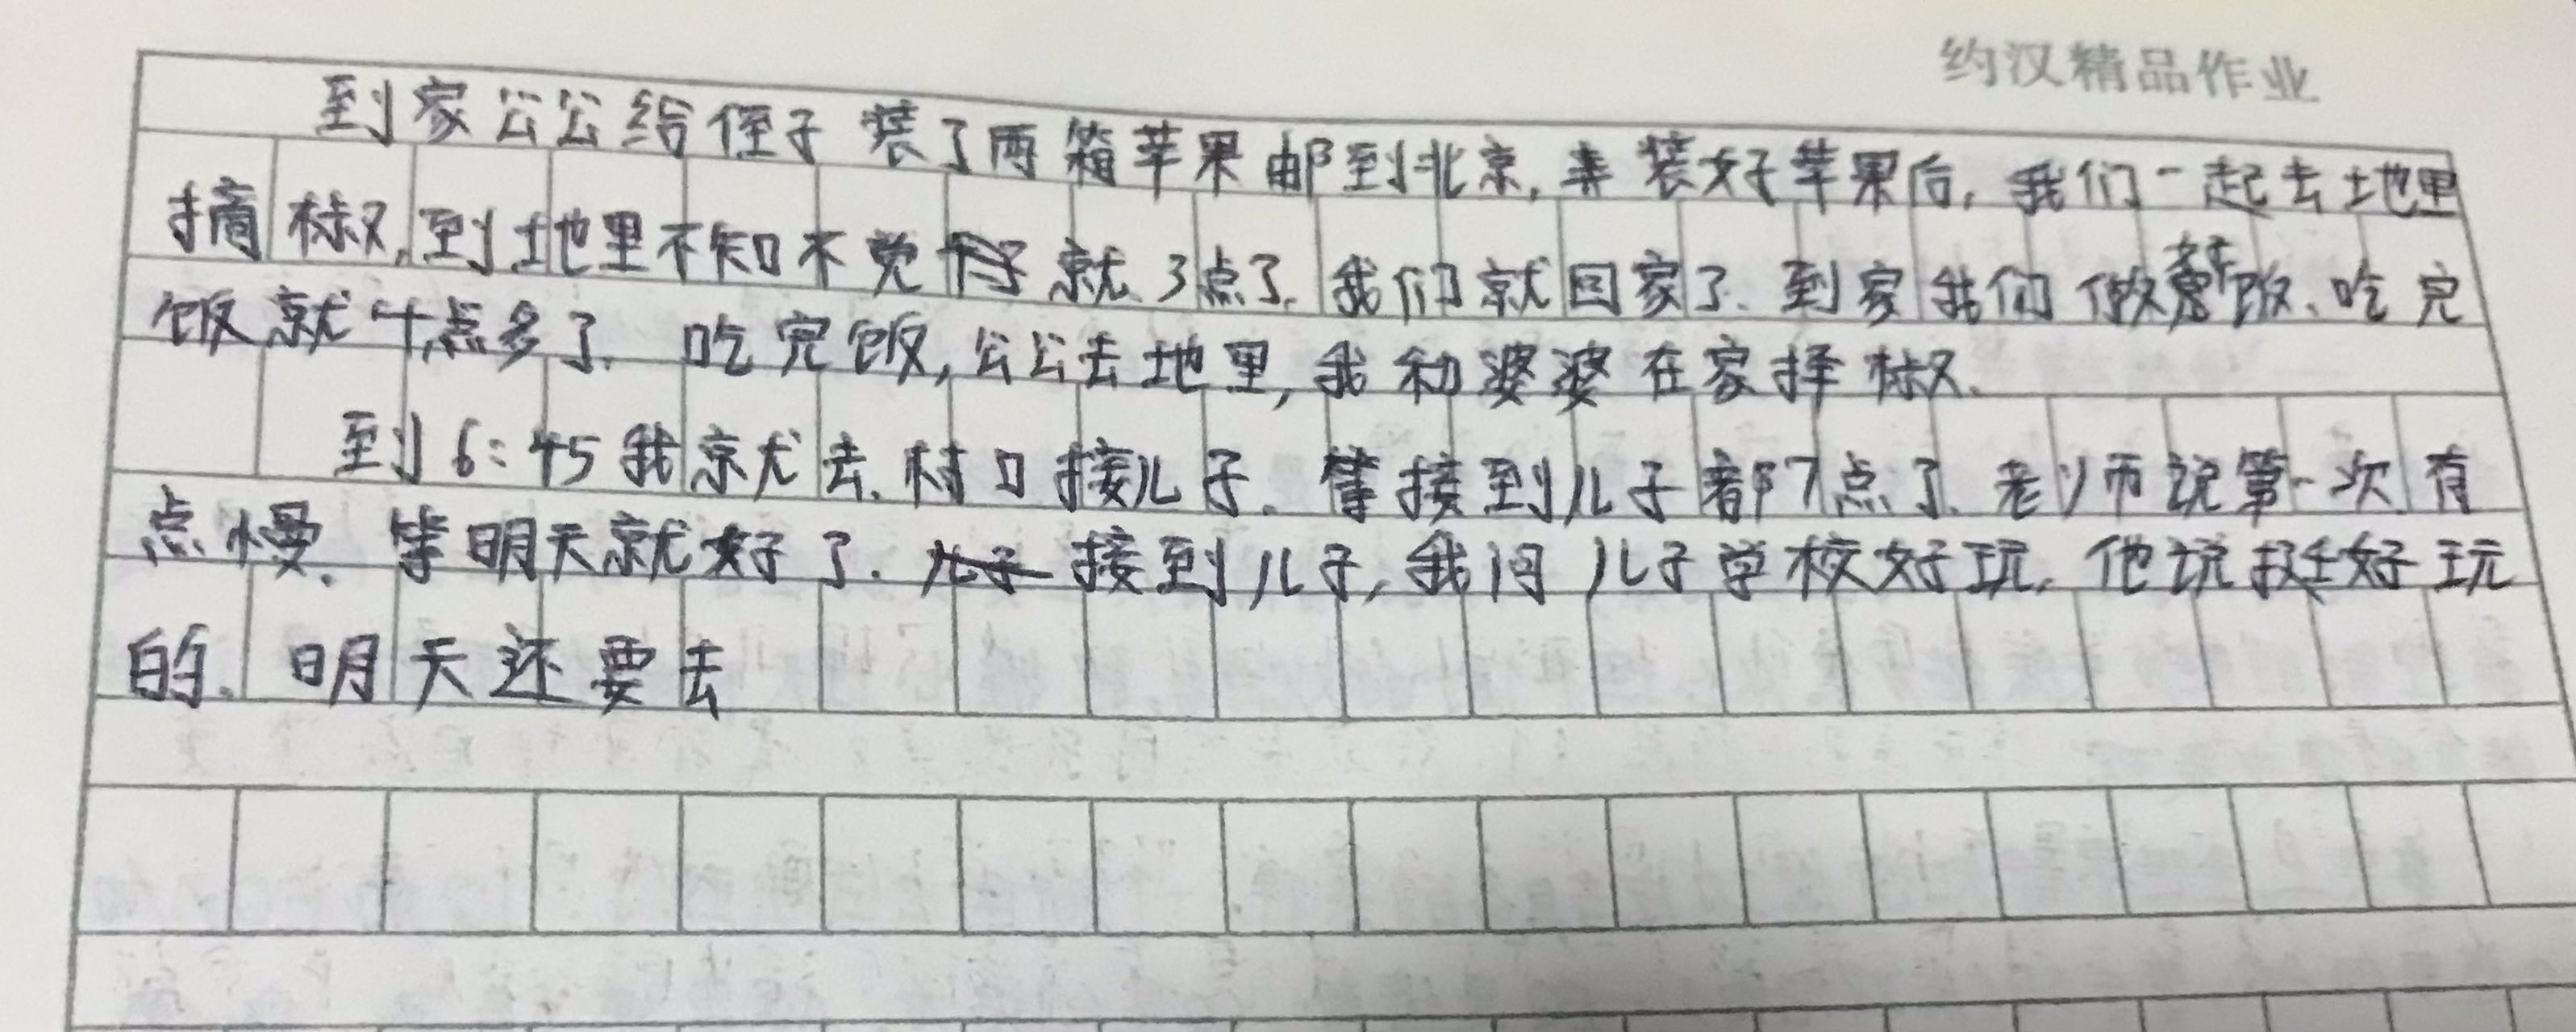 约汉精品作业
到家公公给侄子装了两箱苹果邮到北京,装好苹果后,我们一起去地里
摘椒,到地里不知不觉就3点了.我们就回家了.到家我们做饭、吃完
饭就4点多了.吃完饭,公公去地里,我和婆婆在家择椒.
到6:45我就去村口接儿子.等接到儿子都7点了.老师说第一次有
点慢.等明天就好了.接到儿子,我问儿子学校好玩.他说挺好玩
的.明天还要去